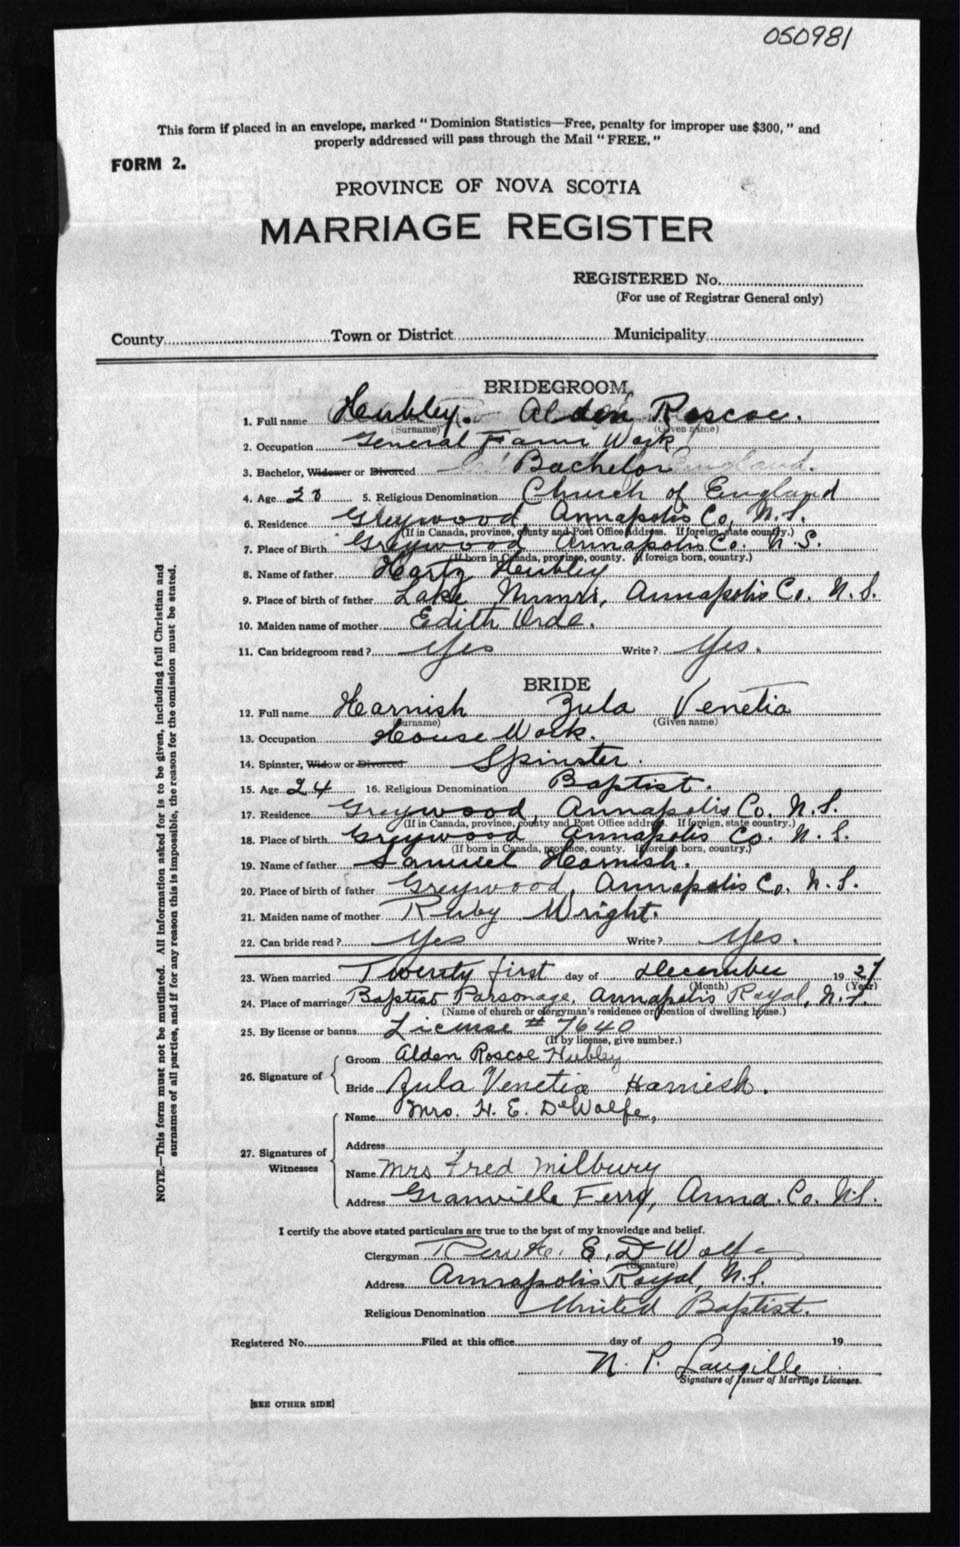 050981
This form if placed in an envelope, marked "Dominion Statistics—Free, penalty for improper use $300," and
properly addressed will pass through the Mail "FREE."
FORM 2.
PROVINCE OF NOVA SCOTIA
MARRIAGE REGISTER
REGISTERED No.
(For use of Registrar General only)
County Town or District Municipality
BRIDEGROOM
1. Full name Hubley. Alden Roscoe.
(Surname) (Given name)
2. Occupation General Farm Work
3. Bachelor, Widower or Divorced Bachelor
4. Age 28 5. Religious Denomination Church of England
6. Residence Greywood, Annapolis Co, N.S.
(If in Canada, province, county and Post Office address. If foreign, state country.)
7. Place of Birth Greywood Annapolis Co. N.S.
(If born in Canada, province, county. If foreign born, country.)
8. Name of father Hartz Hubley
9. Place of birth of father Lake Annapolis Co. N.S.
10. Maiden name of mother Edith Orde.
11. Can bridegroom read? Yes Write? Yes.
BRIDE
12. Full name Harnish Zula Venetia
(Surname) (Given name)
13. Occupation House Work.
14. Spinster, Widow or Divorced Spinster.
15. Age 24 16. Religious Denomination Baptist.
17. Residence Greywood, Annapolis Co. N.S.
(If in Canada, province, county and Post Office address. If foreign, state country.)
18. Place of birth Greywood Annapolis Co. N.S.
(If born in Canada, province, county. If foreign born, country.)
19. Name of father Samuel Harnish.
20. Place of birth of father Greywood, Annapolis Co. N.S.
21. Maiden name of mother Ruby Wright.
22. Can bride read? Yes Write? Yes.
23. When married Twenty first day of December 1927
(Month) (Year)
24. Place of marriage Baptist Parsonage, Annapolis Royal, N.S.
(Name of church or clergyman's residence or location of dwelling house.)
25. By license or banns License # 7640
(If by license, give number.)
26. Signature of
Groom Alden Roscoe Hubley
Bride Zula Venetia Harnish.
27. Signatures of Witnesses
Name Mrs. H. E. DeWolfe,
Address
Name Mrs Fred Milbury
Address Granville Ferry, Anna. Co. N.S.
I certify the above stated particulars are true to the best of my knowledge and belief.
Clergyman E. DeWolfe
(Signature)
Address Annapolis Royal, N.S.
Religious Denomination United Baptist.
Registered No. Filed at this office day of 19
N. P. Laugille
Signature of Issuer of Marriage Licenses.
[SEE OTHER SIDE]
NOTE.—This form must not be mutilated. All information asked for is to be given, including full Christian and
surnames of all parties, and if for any reason this is impossible, the reason for the omission must be stated.